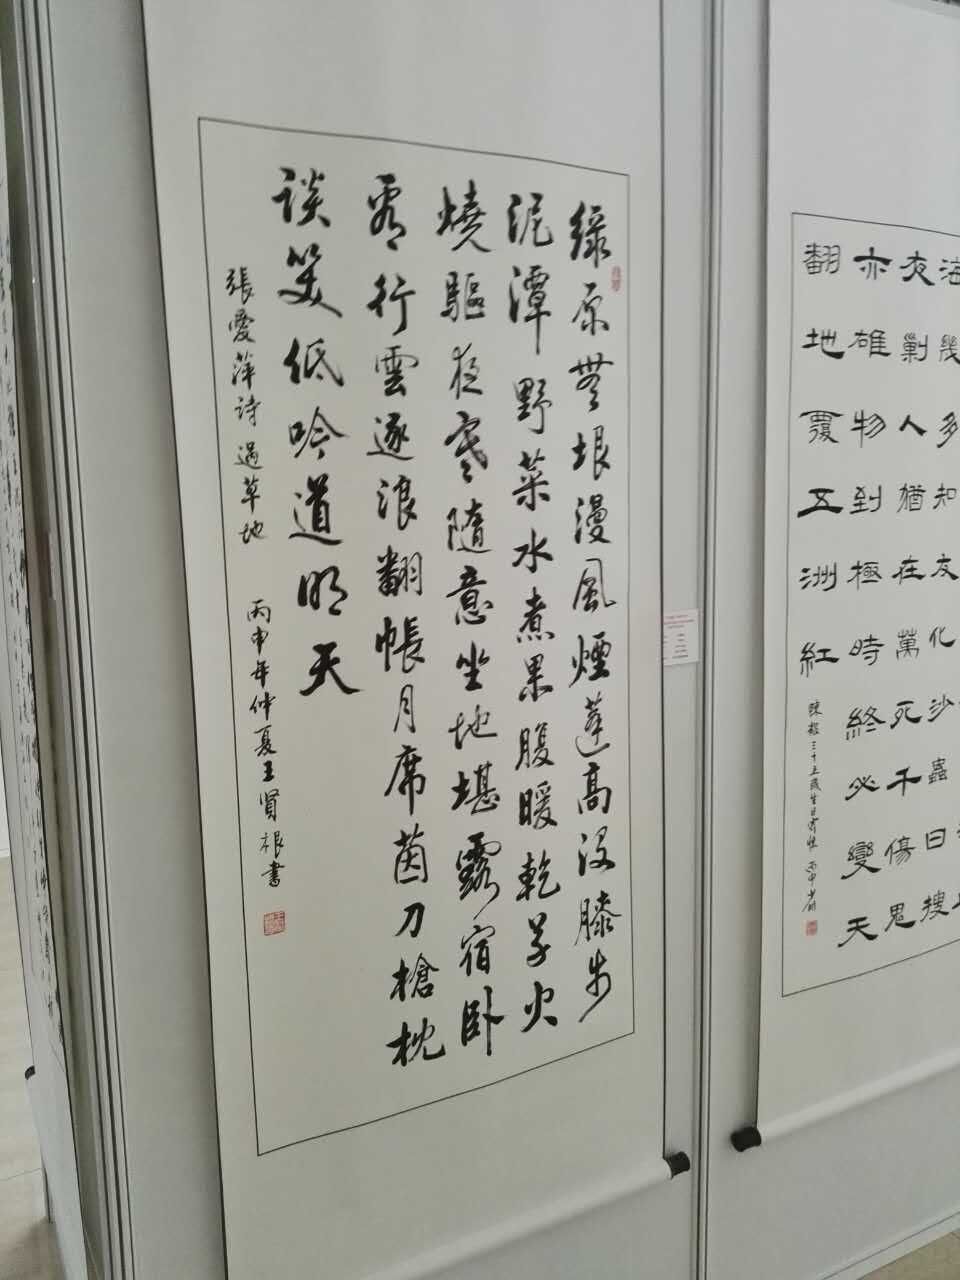 綠原無垠漫風煙蓬高沒膝步
泥潭野菜水煮果腹暖乾草火
燒驅夜寒隨意坐地堪露宿臥
看行雲逐浪翻帳月席茵刀槍枕
談笑低吟道明天
張愛萍詩過草地 丙申年仲夏王賢根書
海幾多知友化沙蟲日搜
夜剿人猶在萬死千傷鬼
亦雄物到極時終必變天
翻地覆五洲紅
陳毅三十五歲生日寄懷 丙申